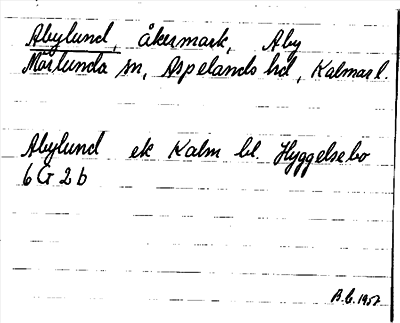 Abylund, åkermark, Aby
Mörlunda sn, Aspelands hd, Kalmar l.
Abylund ek Kalm bl. Hyggelsebo
6G2b
B.C. 1957